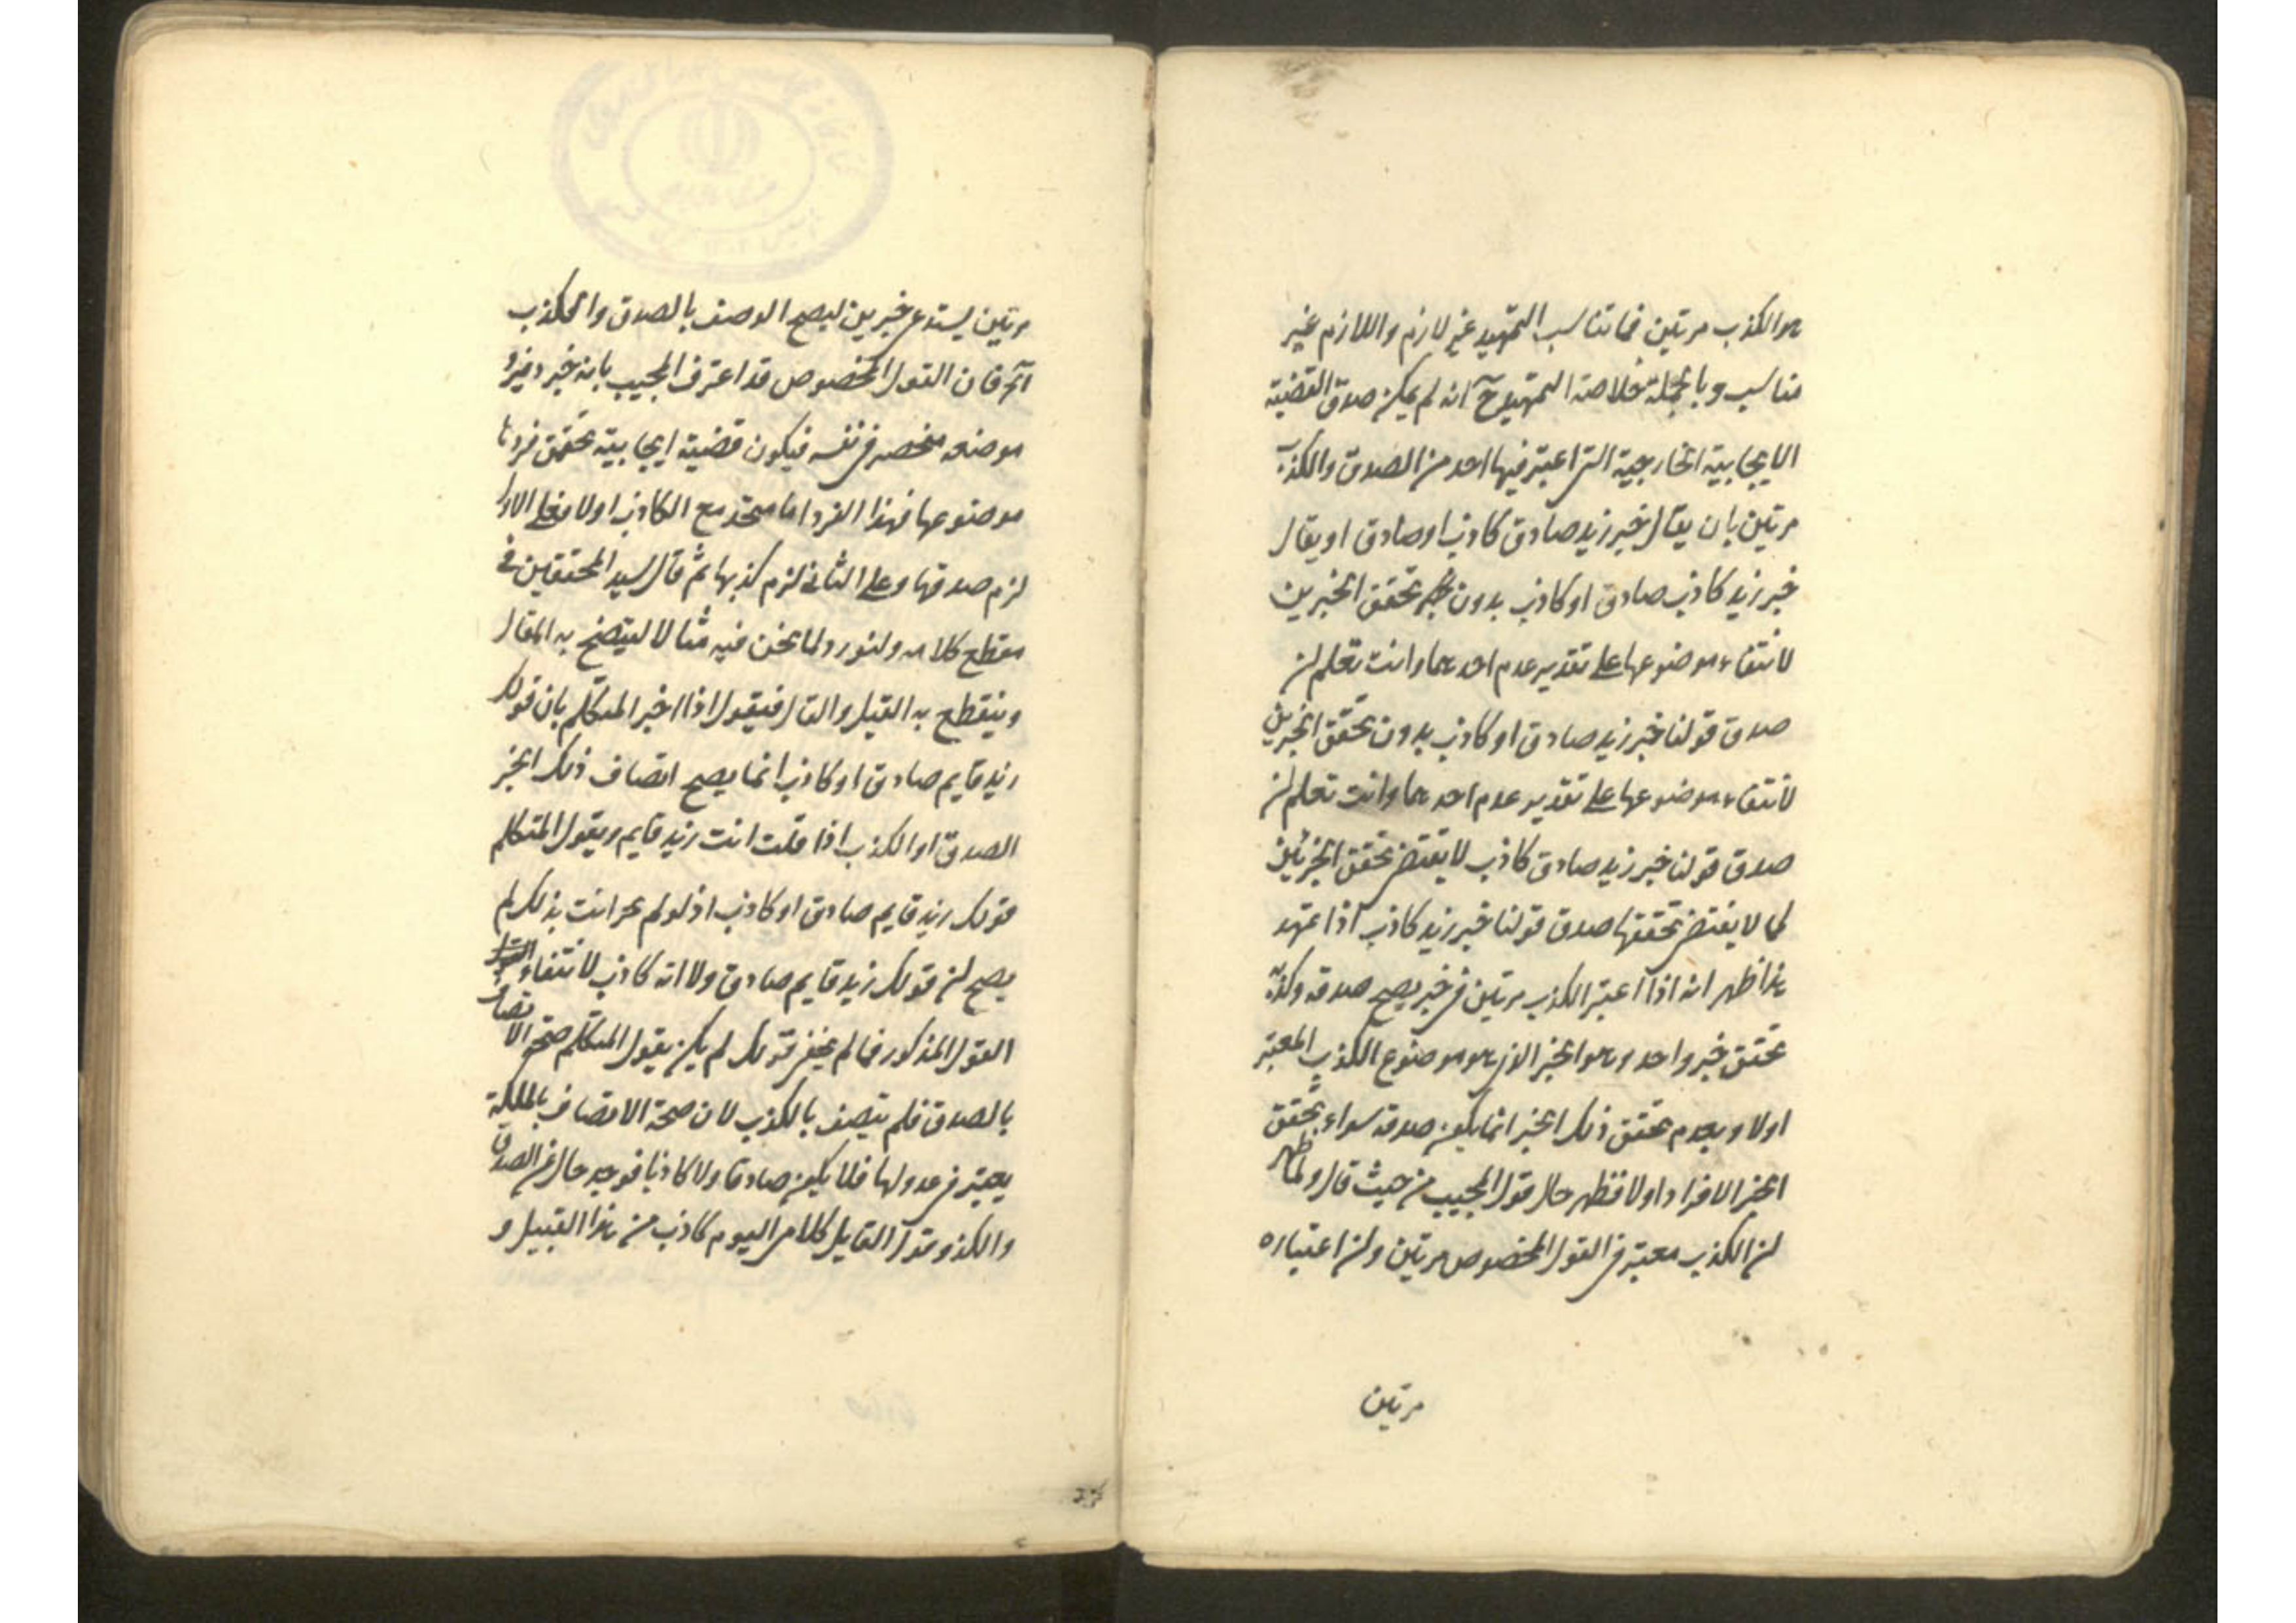 هو الكذب مرتين فما تناسب التمهيد غير لازم واللازم غير
مناسب وبالجملة خلاصة التمهيد ح انه لم يمكن صدق القضية
الايجابية الخارجية التى اعتبر فيها احد من الصدق والكذب
مرتين بان يقال خبر زيد صادق كاذب او صادق او يقال
خبر زيد كاذب صادق او كاذب بدون تحقق الخبرين
لانتفاء موضوعها على تقدير عدم احدهما وانت تعلم ان
صدق قولنا خبر زيد صادق او كاذب بدون تحقق الخبرين
لانتفاء موضوعها على تقدير عدم احدهما وانت تعلم ان
صدق قولنا خبر زيد صادق كاذب لا يقتضى تحقق الخبرين
كما لا يقتضى تحققها صدق قولنا خبر زيد كاذب اذا تمهد
هذا ظهر انه اذا اعتبر الكذب مرتين فى خبر يصح صدقه وكذبه
تحقق خبر واحد وهو الخبر الذى هو موضوع الكذب المعتبر
اولا وبعدم تحقق ذلك الخبر انما يكون صدقه سواء تحقق
الخبر الافراد اولا فظهر حال قول المجيب من حيث قال ولما ظهر
ان الكذب معتبر فى القول المخصوص مرتين وان اعتباره
مرتين
مرتين يستدعى خبرين ليصح الوصف بالصدق والكذب
آخر فان القول المخصوص قد اعترف المجيب بانه خبر وفرد
موضوعه منحصر فى نفسه فيكون قضية ايجابية تحقق فرد
موضوعها فهذا الفرد اما متحد مع الكاذب اولا فعلى الاول
لزم صدقها وعلى الثانى لزم كذبها ثم قال سيد المحققين فى
مقطع كلامه ولنورد لما نحن فيه مثالا ليتضح به المقال
وينقطع به القيل والقال فنقول اذا اخبر المتكلم بان قولك
زيد قايم صادق او كاذب انما يصح اتصاف ذلك الخبر
الصدق او الكذب اذا قلت انت زيد قايم ويقول المتكلم
قولك زيد قايم صادق او كاذب اذ لو لم انت بذلك لم
يصح ان قولك زيد قايم صادق ولا انه كاذب لانتفاء
القول المذكور فما لم قولك لم يكن يقول المتكلم صحة الاتصاف
بالصدق فلم يتصف بالكذب لان صحة الاتصاف بالملكة
يعتبر فى عدولها فلا يكون صادقا ولا كاذبا فوجد حال عن الصدق
والكذ وقول القايل كلامى اليوم كاذب من هذا القبيل و